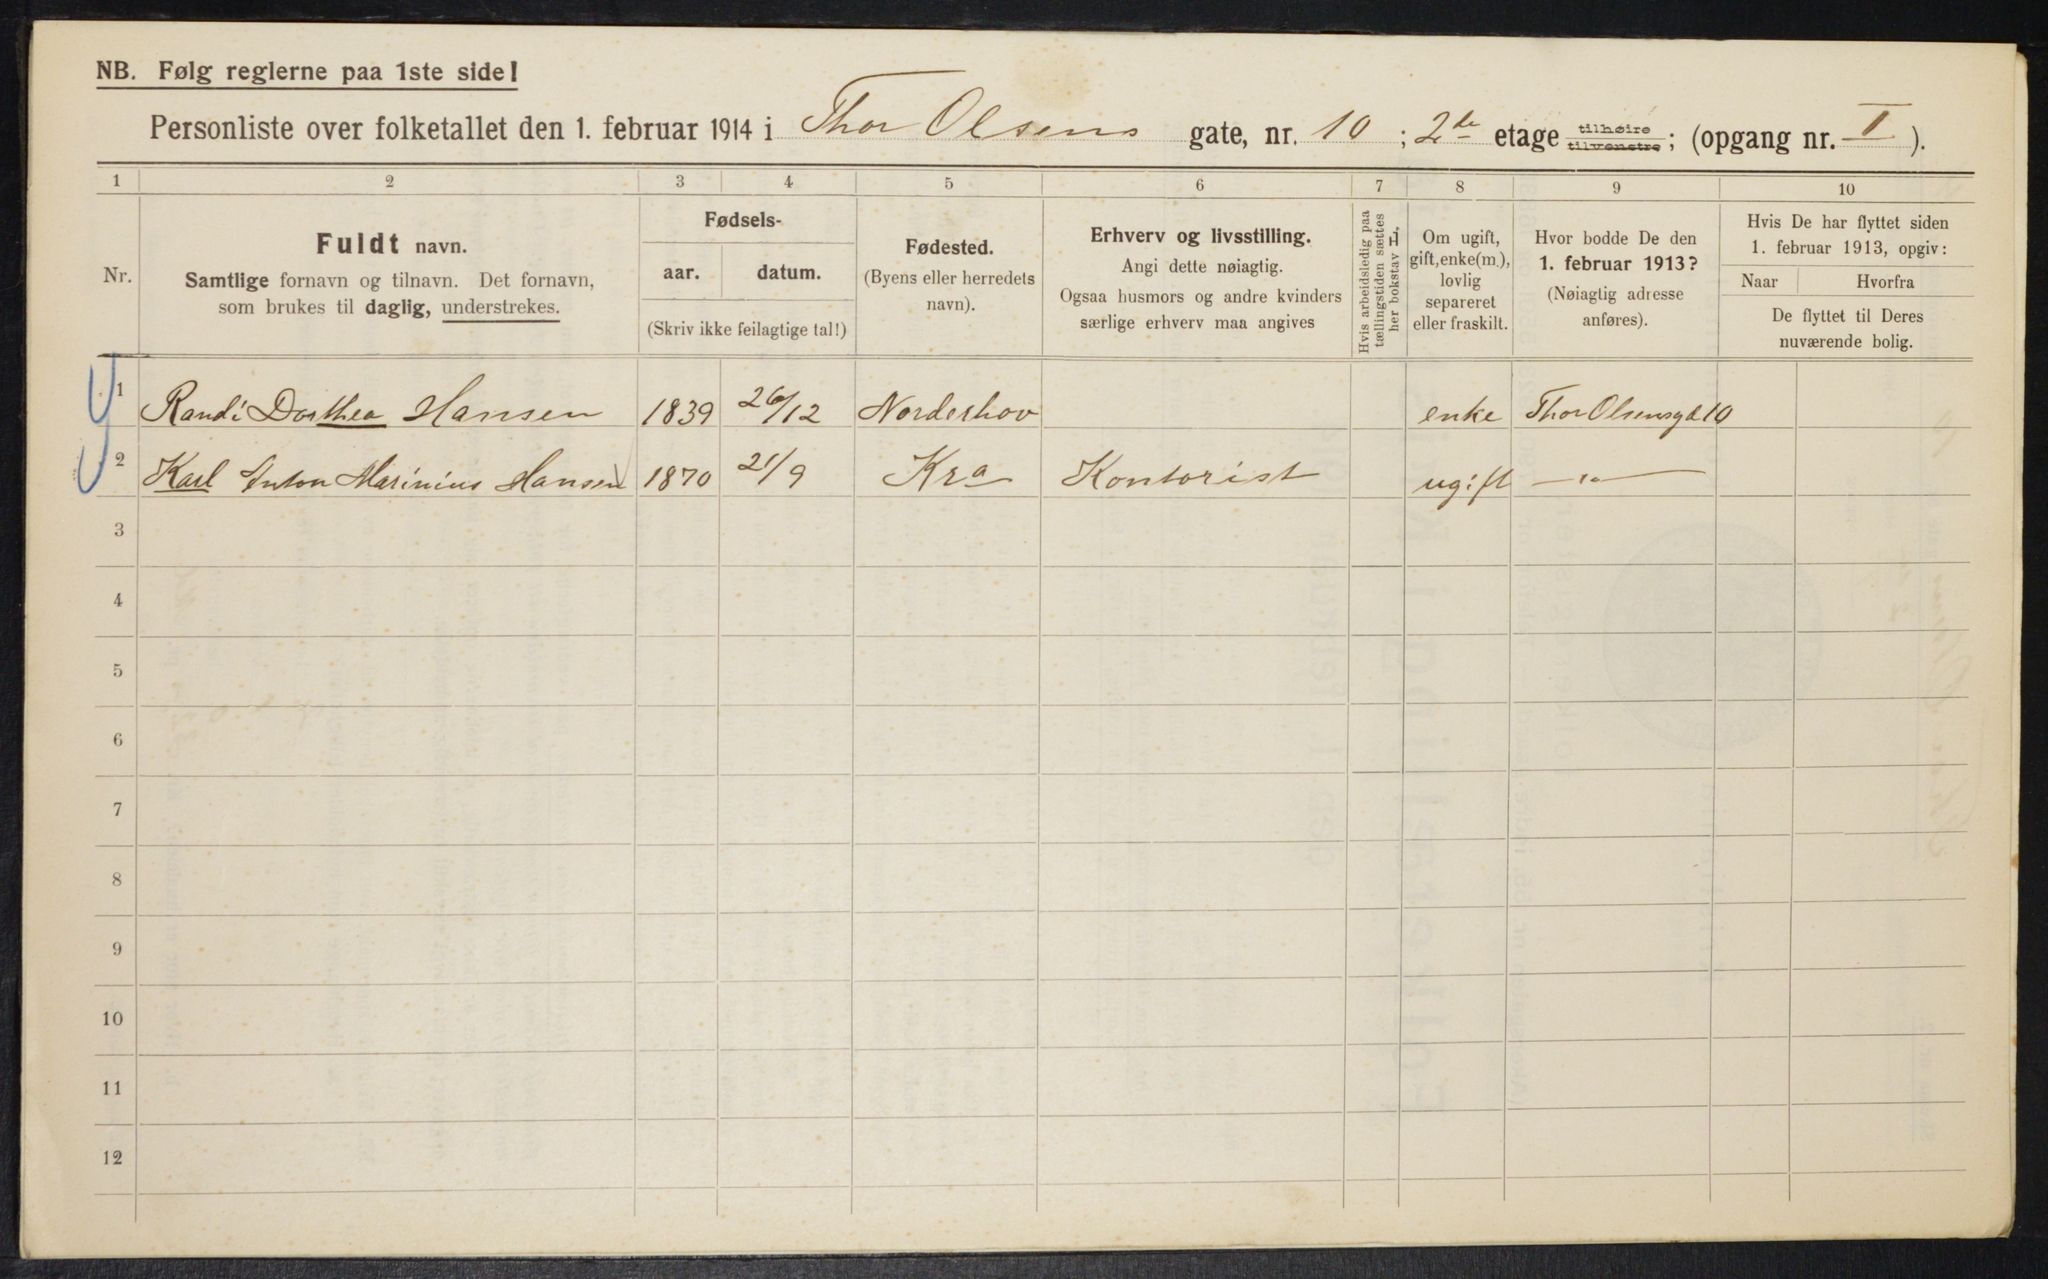 NB. Følg reglerne paa 1ste side!
Personliste over folketallet den 1. februar 1914 i Thor Olsens gate, nr. 10; 2de etage tilhøire tilvenstre; (opgang nr. I).
1 2 3 4 5 6 7 8 9 10
Nr.
Fuldt navn.
Samtlige fornavn og tilnavn. Det fornavn,
som brukes til daglig, understrekes.
Fødsels-
aar. datum.
(Skriv ikke feilagtige tal!)
Fødested.
(Byens eller herredets
navn).
Erhverv og livsstilling.
Angi dette nøiagtig.
Ogsaa husmors og andre kvinders
særlige erhverv maa angives
Hvis arbeidsledig paa
tællingstiden sættes
her bokstav L.
Om ugift,
gift, enke(m.),
lovlig
separeret
eller fraskilt.
Hvor bodde De den
1. februar 1913?
(Nøiagtig adresse
anføres).
Hvis De har flyttet siden
1. februar 1913, opgiv:
Naar Hvorfra
De flyttet til Deres
nuværende bolig.
1 Randi Dorthea Hansen 1839 26/12 Norderhov enke Thor Olsensgd 10
2 Karl Anton Marinius Hansen 1870 21/9 Kra Kontorist ugift —"—
3
4
5
6
7
8
9
10
11
12